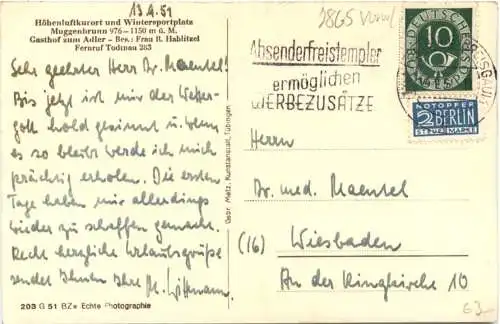 13.9.51
Höhenluftkurort und Wintersportplatz
Muggenbrunn 976–1150 m ü. M.
Gasthof zum Adler - Bes.: Frau R. Hablitzel
Fernruf Todtnau 283
Sehr geehrter Herr Dr. Maentel!
Bis jetzt ist mir der Wetter-
gott hold gesinnt u. wenn
es so bleibt werde ich mich
prächtig erholen. Die ersten
Tage haben mir allerdings
wieder zu schaffen gemacht.
Recht herzliche Urlaubsgrüße
sendet Ihnen Ihre M. Wittmann.
203 G 51 BZe Echte Photographie
Gebr. Metz, Kunstanstalt, Tübingen
3865
Absenderfreistempler
ermöglichen
WERBEZUSÄTZE
DEUTSCHE BUNDESPOST
10
NOTOPFER
2 BERLIN
STEUERMARKE
Herrn
Dr. med. Maentel
(16) Wiesbaden
An der Ringkirche 10
63